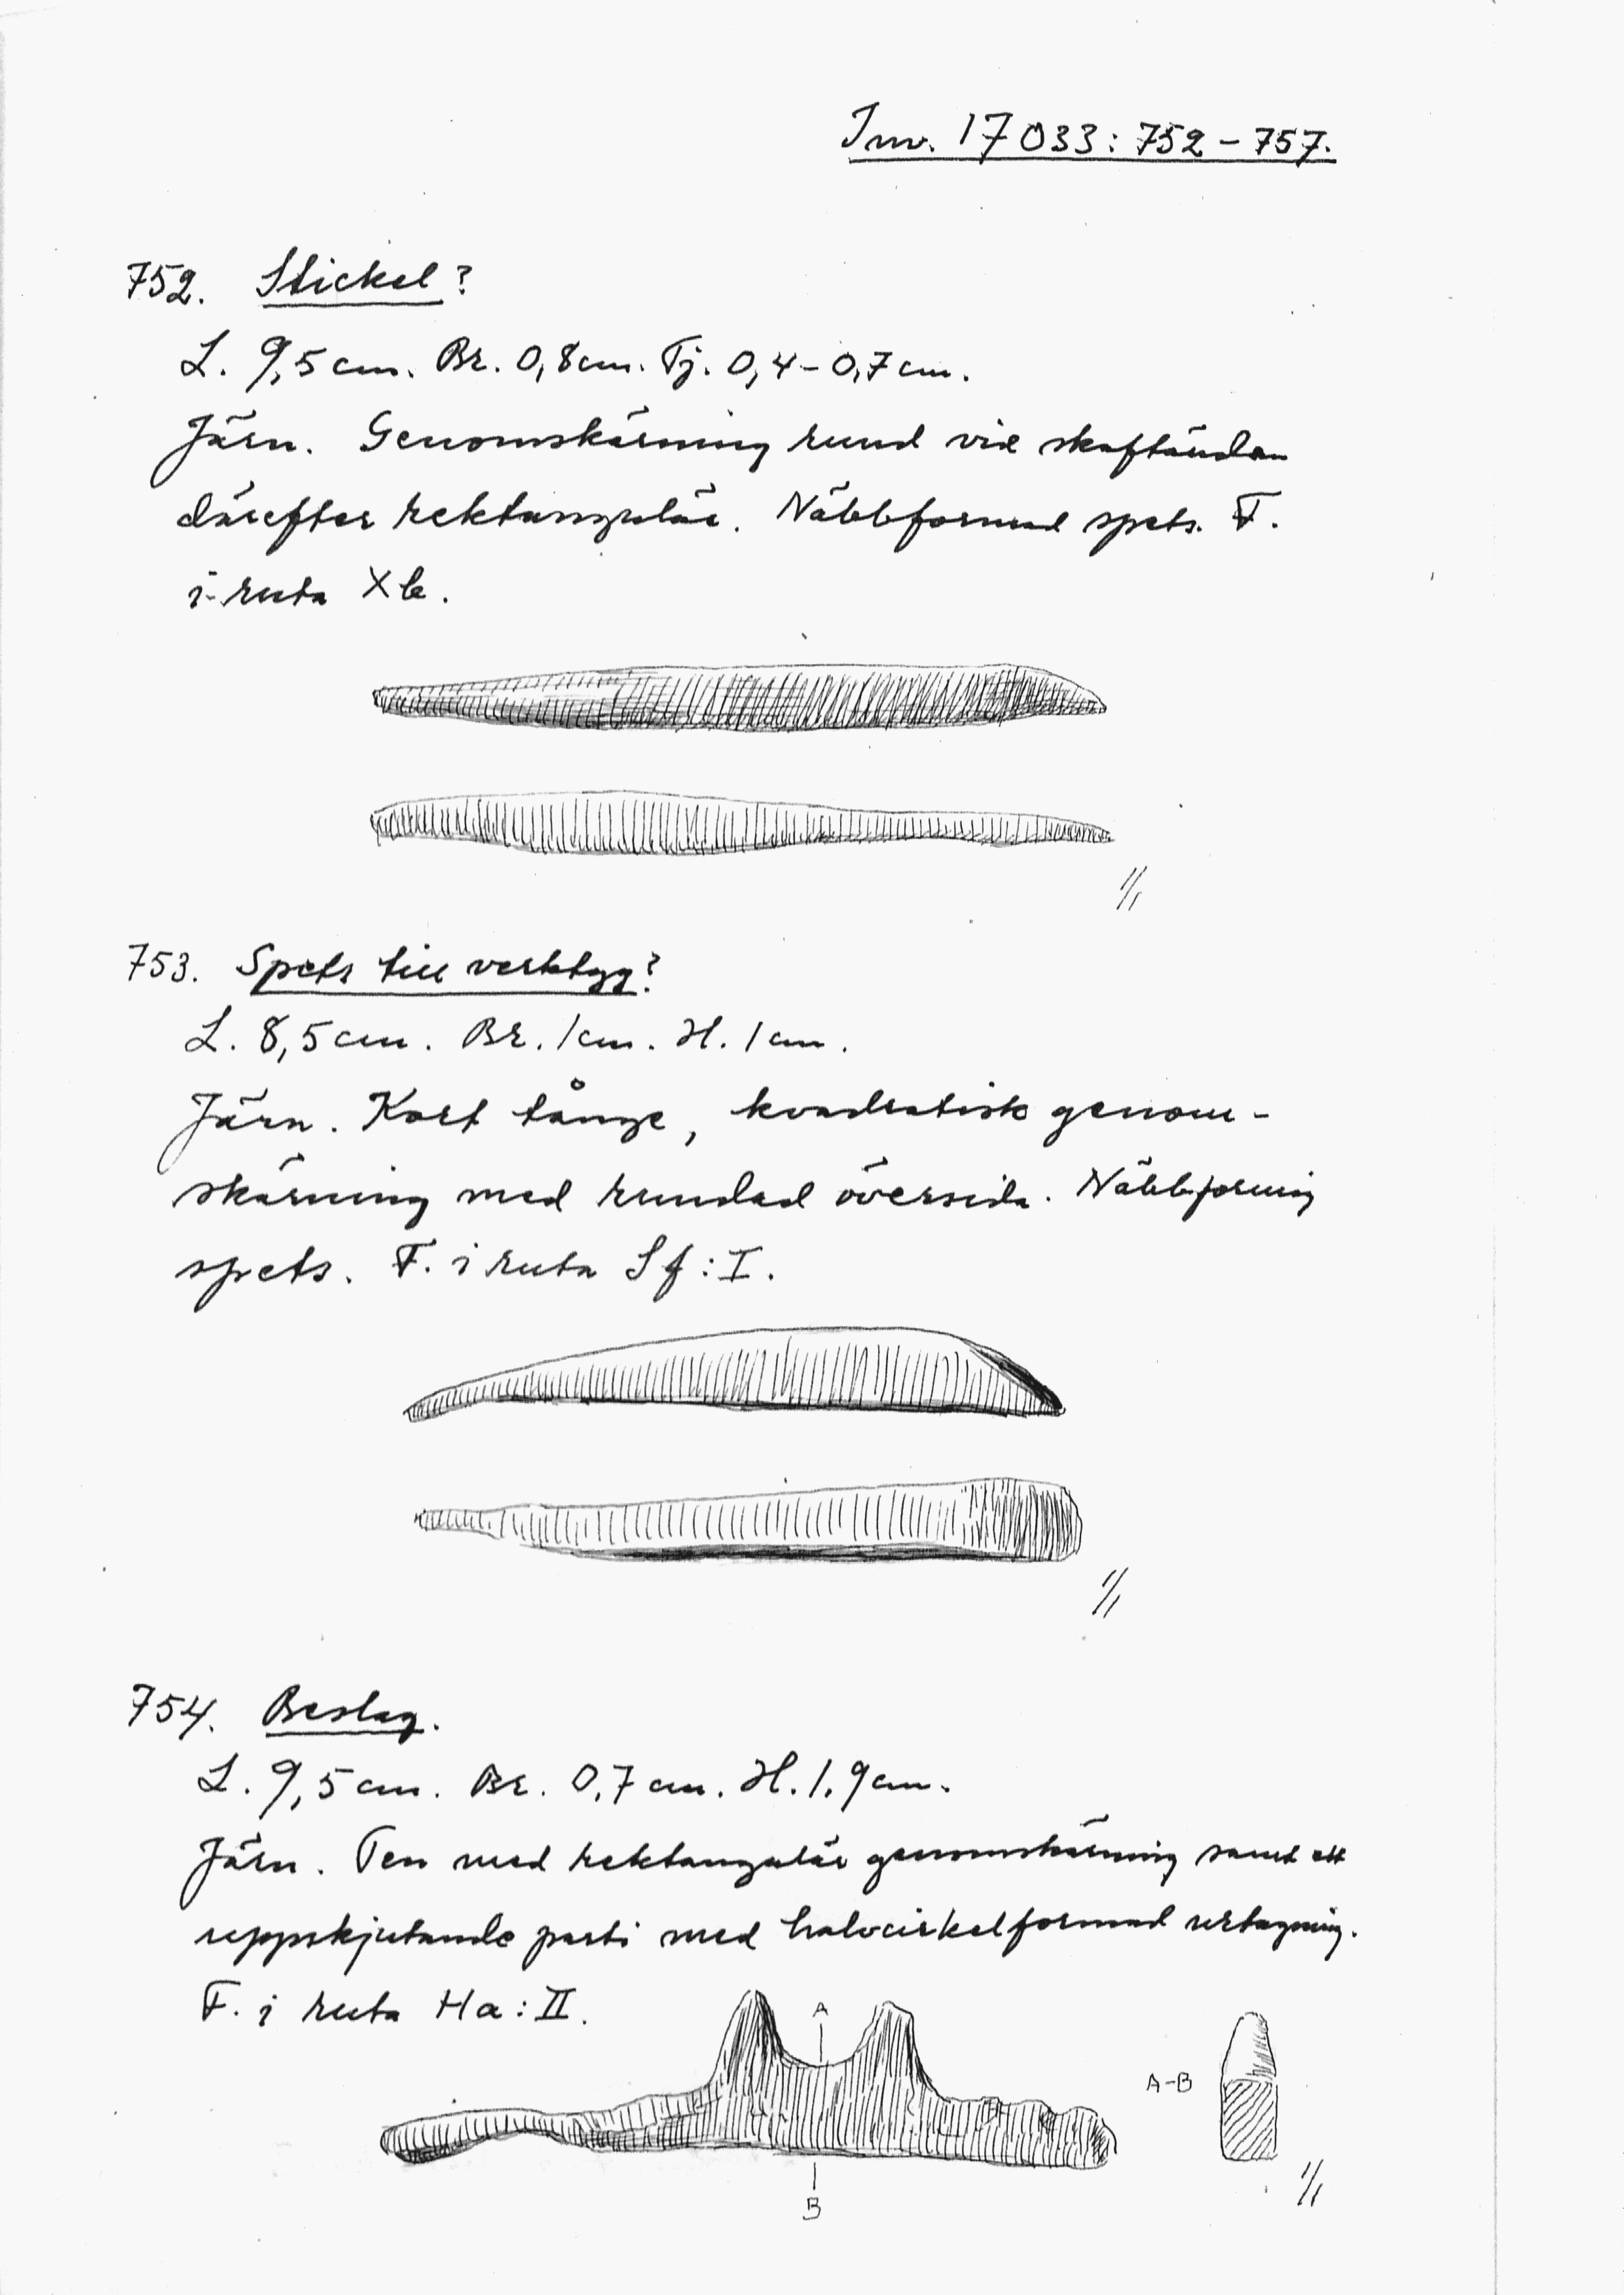 Inv. 17033:752-757.
752. Stickel?
L. 9,5 cm. Br. 0,8 cm. Tj. 0,4-0,7 cm.
Järn. Genomskärning rund vid skaftändan
därefter rektangulär. Näbbformad spets. F.
i ruta Xb.
1/1
753. Spets till verktyg?
L. 8,5 cm. Br. 1 cm. H. 1 cm.
Järn. Kort tånge, kvadratisk genom-
skärning med rundad översida. Näbbformig
spets. F. i ruta Sf:I.
1/1
754. Beslag.
L. 9,5 cm. Br. 0,7 cm. H. 1,9 cm.
Järn. Ten med rektangulär genomskärning samt ett
uppskjutande parti med halvcirkelformad urtagning.
F. i ruta Ha:II.
A
A-B
B
1/1